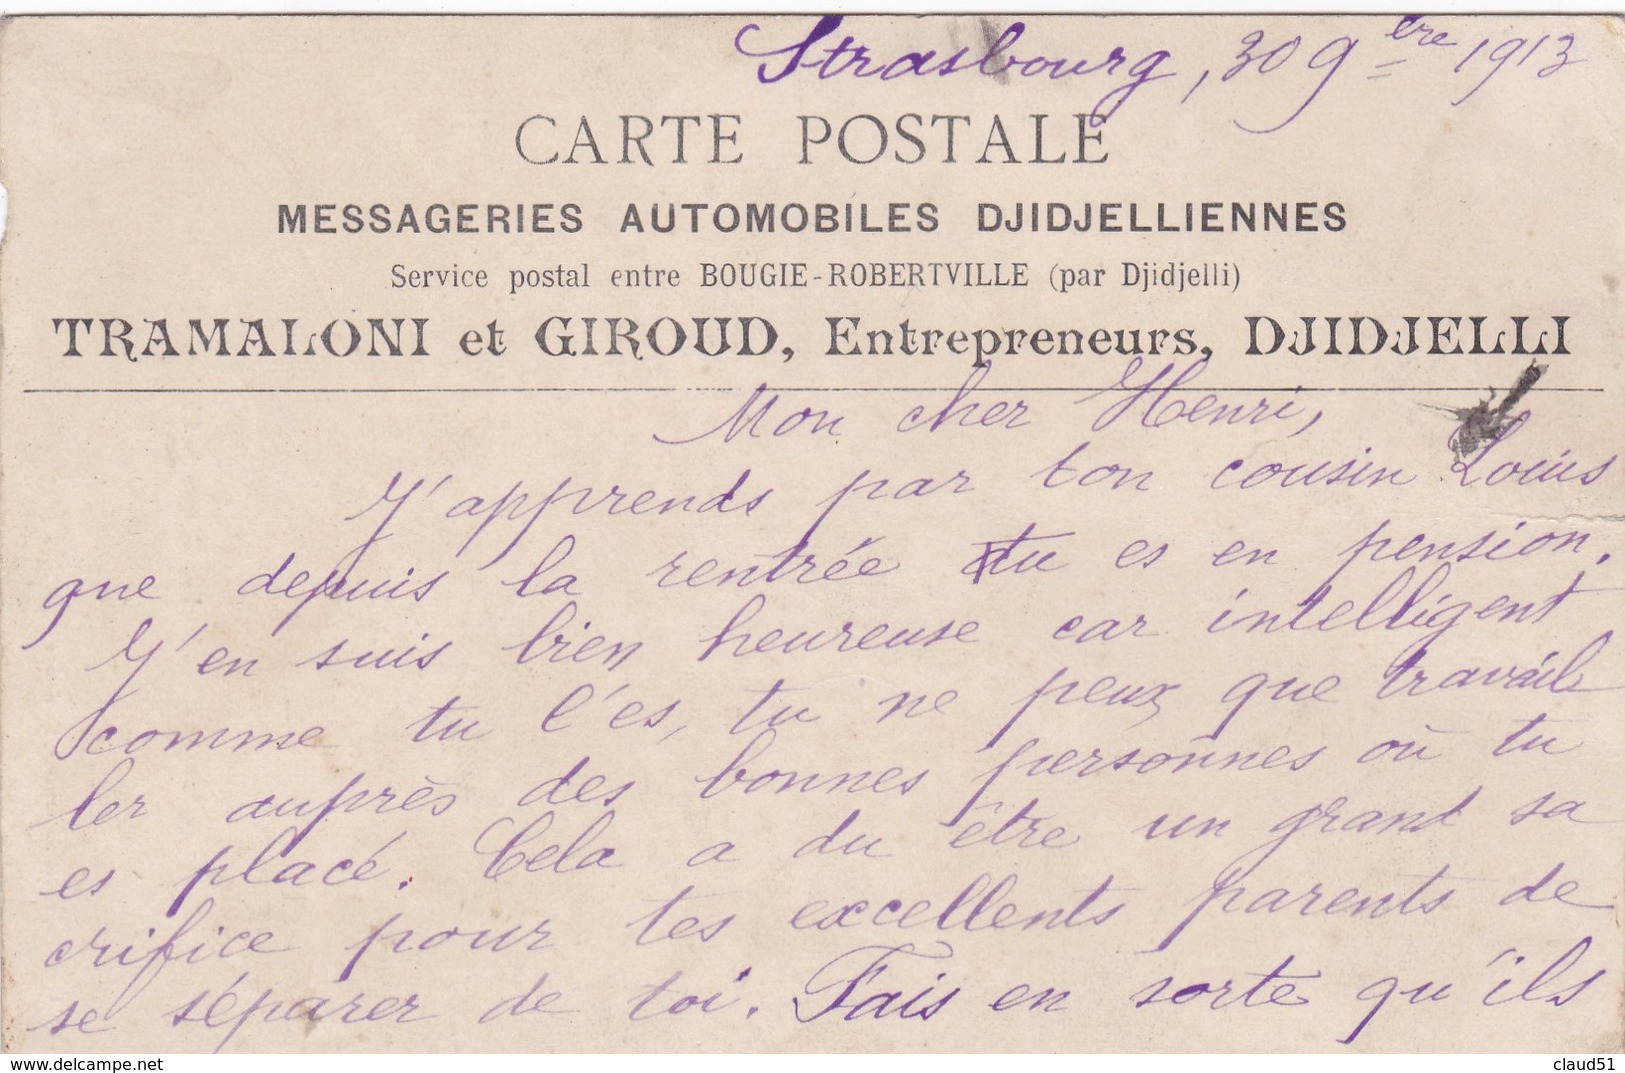 Strasbourg, 30 9bre 1913
CARTE POSTALE
MESSAGERIES AUTOMOBILES DJIDJELLIENNES
Service postal entre BOUGIE-ROBERTVILLE (par Djidjelli)
TRAMALONI et GIROUD, Entrepreneurs, DJIDJELLI
Mon cher Henri,
J'apprends par ton cousin Louis
que depuis la rentrée tu es en pension.
J'en suis bien heureuse car intelligent
comme tu l'es, tu ne peux que travail
ler auprès des bonnes personnes où tu
es placé. Cela a du être un grand sa
crifice pour tes excellents parents de
se séparer de toi. Fais en sorte qu'ils
www.delcampe.net
claud51